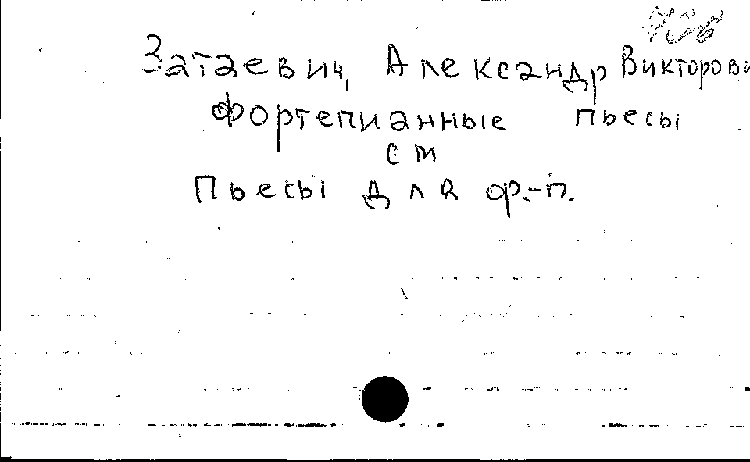 Затаевич, Александр Викторови
Фортепианные пьесы
см
Пьесы для ф.-п.